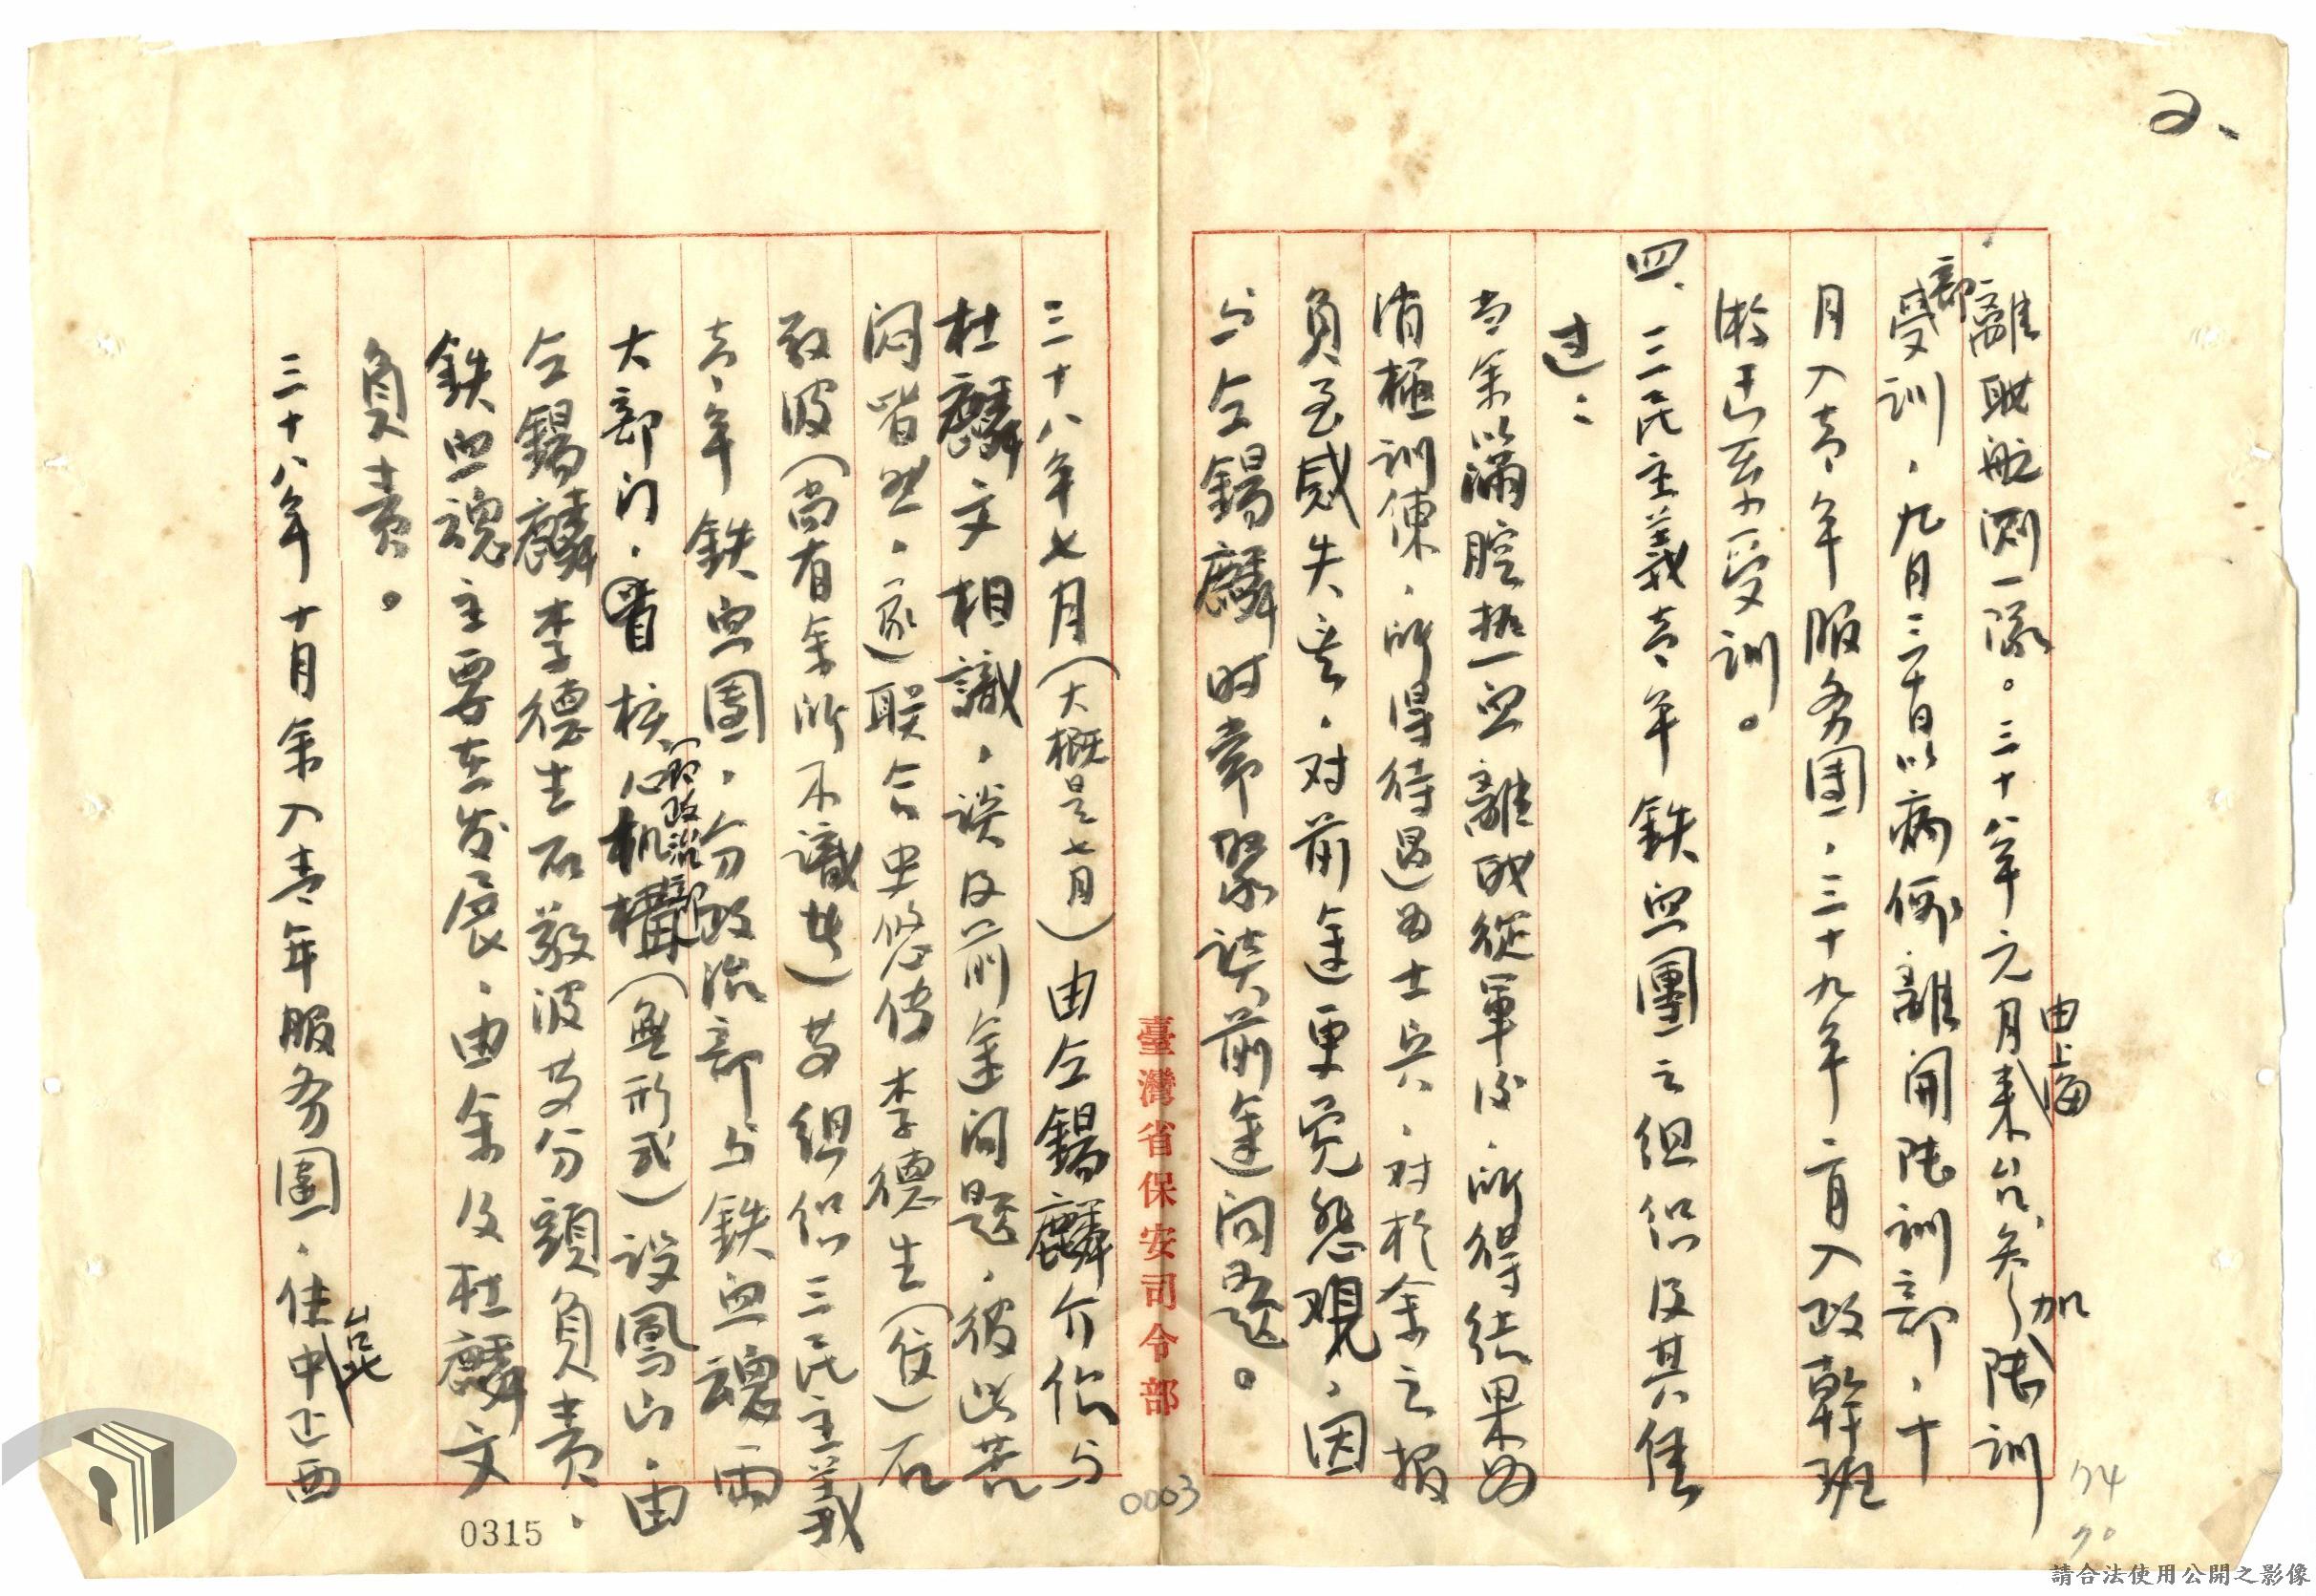 2、
離联航測一隊。三十八年元月由上海來台參加陸訓
部受訓，九月三十日以病假離開陸訓部，十
月入青年服务團，三十九年二月入政幹班
於 受訓。
四、三民主義青年鉄血團之組织及其經
过：
当余以滿腔热血離 從軍後，所得结果为
消極訓練，所得待遇为士兵，对於余之報
負至感失望，对前途更覺悲觀，因
与仝錫麟时常聚談前途问题。
臺灣省保安司令部
三十八年七月（大概是七月）由仝錫麟介紹与
杜麟文相識，談及前途问题，彼此苦
闷皆然，遂联合史悠偉李德生（俊）石
敬波（尚有余所不識者）等组织三民主義
青年鉄血團，分政治部与鉄血魂两
大部门，核心机構即政治部（無形式）設鳳山，由
仝錫麟李德生石敬波等分頭負責，
鉄血魂主要在发展，由余及杜麟文
負責。
三十八年十月余入青年服务團，住台北中正西
0003
0315
74
70
請合法使用公開之影像